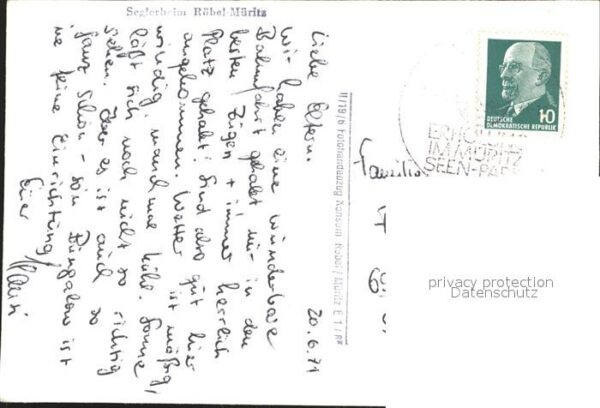 Seglerheim Röbel-Müritz
20.6.71
Liebe Eltern.
Wir haben eine wunderbare
Bahnfahrt gehabt nur in den
besten Zügen + immer herrlich
Platz gehabt! Sind also gut hier
angekommen. Wetter ist mäßig,
windig, manchmal kühl. Sonne
läßt sich noch nicht so richtig
sehen. Aber es ist auch so
ganz schön - so'n Bungalow ist
ne feine Einrichtung!
Eier
II/18/8 Fotohandabzug Konsum Röbel/Müritz
DEUTSCHE
DEMOKRATISCHE REPUBLIK
10
IM MÜRITZ
SEEN-PA
Familie
privacy protection
Datenschutz